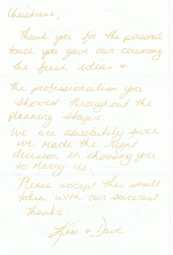 Christene,
Thank you for the personal
touch you gave our ceremony
the fresh ideas &
the professionalism you
showed throughout the
planning stages.
We are absolutely sure
we made the right
decision in choosing you
to marry us.
Please accept this small
token with our sincerest
thanks.
& Dave